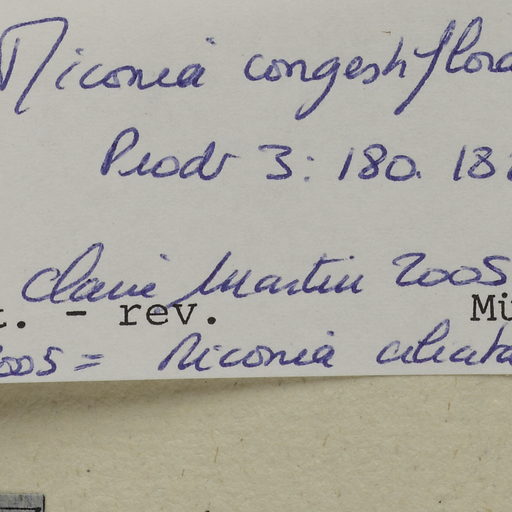 Miconia congestiflora
Prodr 3: 180. 18
Claire Martin 2005
t. - rev. Mü
2005 = Miconia ciliata